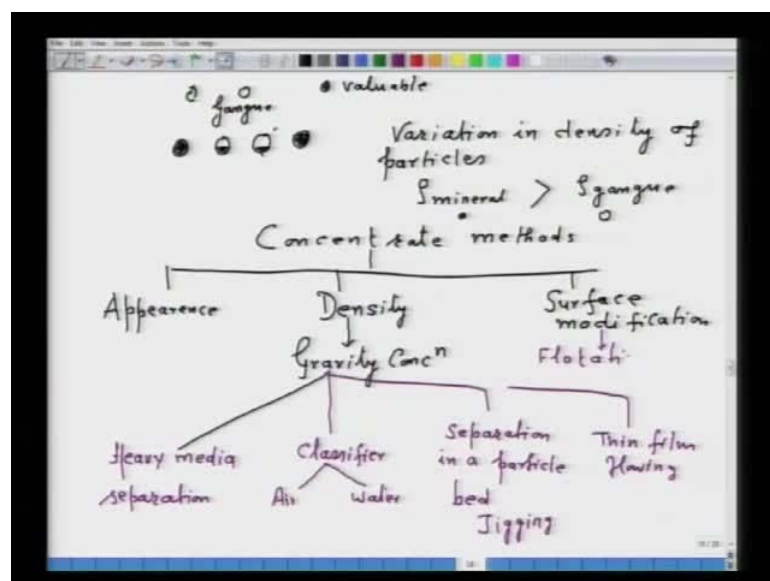 File Edit View Insert Actions Tools Help
valuable
gangue
Variation in density of
particles
ρmineral > ρgangue
Concentrate methods
Appearence
Density
Surface
modification
Gravity Concn
Flotati
Heavy media
separation
Classifier
Air
Water
Separation
in a particle
bed
Jigging
Thin film
flowing